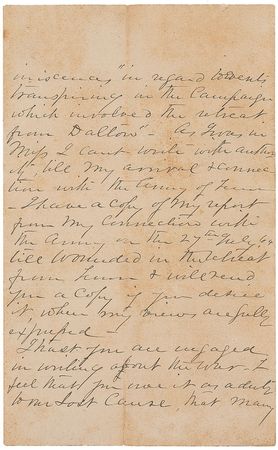 iniscences" in regard to events
transpiring in the Campaign
which involved the retreat
from Dalton" - As I was in
Miss I cant write with author
ity, till my arrival & connec
tion with the Army of Tenn -
I have a Copy of my report
from my connection with
the Army on the 27th July 64
till wounded in the retreat
from Tenn & will send
you a Copy if you desire
it, when my views are fully
expressed -
I trust you are engaged
in writing about the War - I
feel that you owe it as a duty
to our Lost Cause, that many